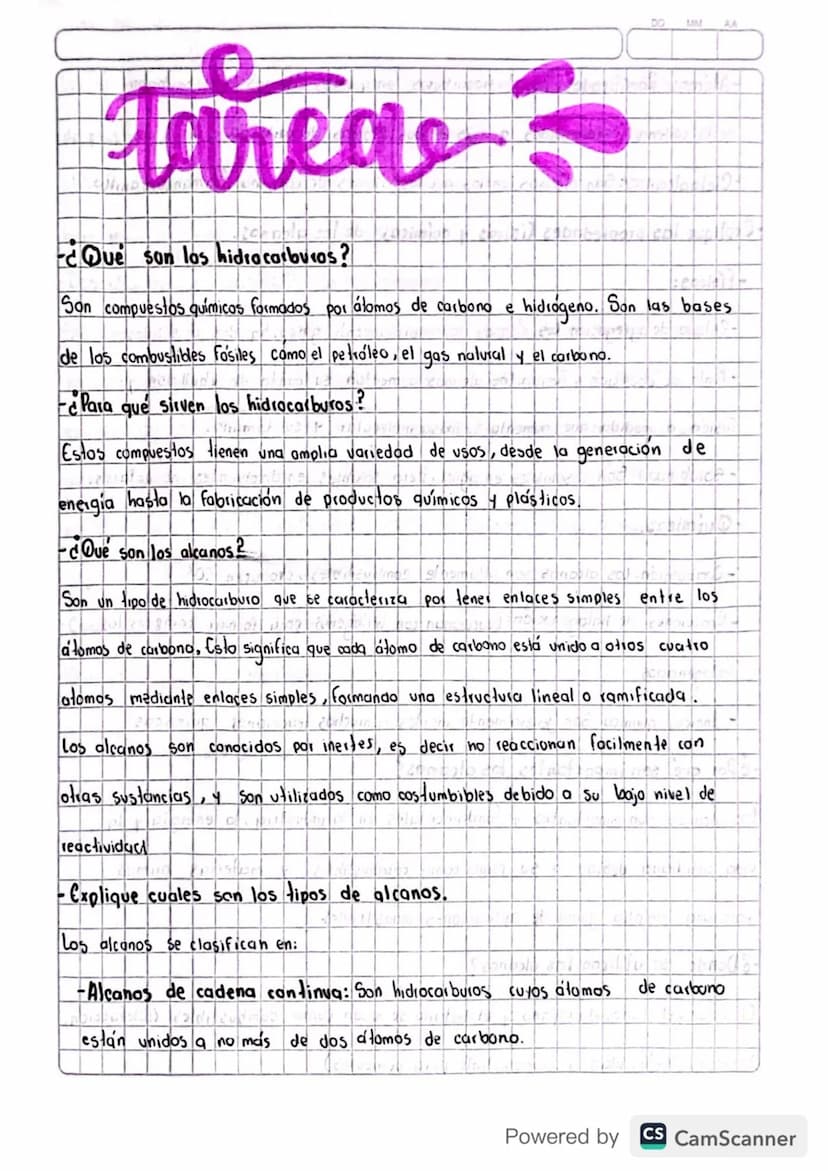 DD MM AA
Tarea
-¿Qué son los hidrocarburos?
Son compuestos químicos formados por átomos de carbono e hidrógeno. Son las bases
de los combustibles fósiles cómo el petróleo, el gas natural y el carbono.
-¿Para qué sirven los hidrocarburos?
Estos compuestos tienen una amplia variedad de usos, desde la generación de
energía hasta la fabricación de productos químicos y plásticos.
-¿Qué son los alcanos?
Son un tipo de hidrocarburo que se caracteriza por tener enlaces simples entre los
átomos de carbono. Esto significa que cada átomo de carbono está unido a otros cuatro
atomos mediante enlaces simples, formando una estructura lineal o ramificada.
Los alcanos son conocidos por inertes, es decir no reaccionan facilmente con
otras sustancias, y son utilizados como costumbibles debido a su bajo nivel de
reactividad
-Explique cuales son los tipos de alcanos.
Los alcanos se clasifican en:
-Alcanos de cadena continua: Son hidrocarburos cuyos átomos de carbono
están unidos a no más de dos átomos de carbono.
Powered by CS CamScanner